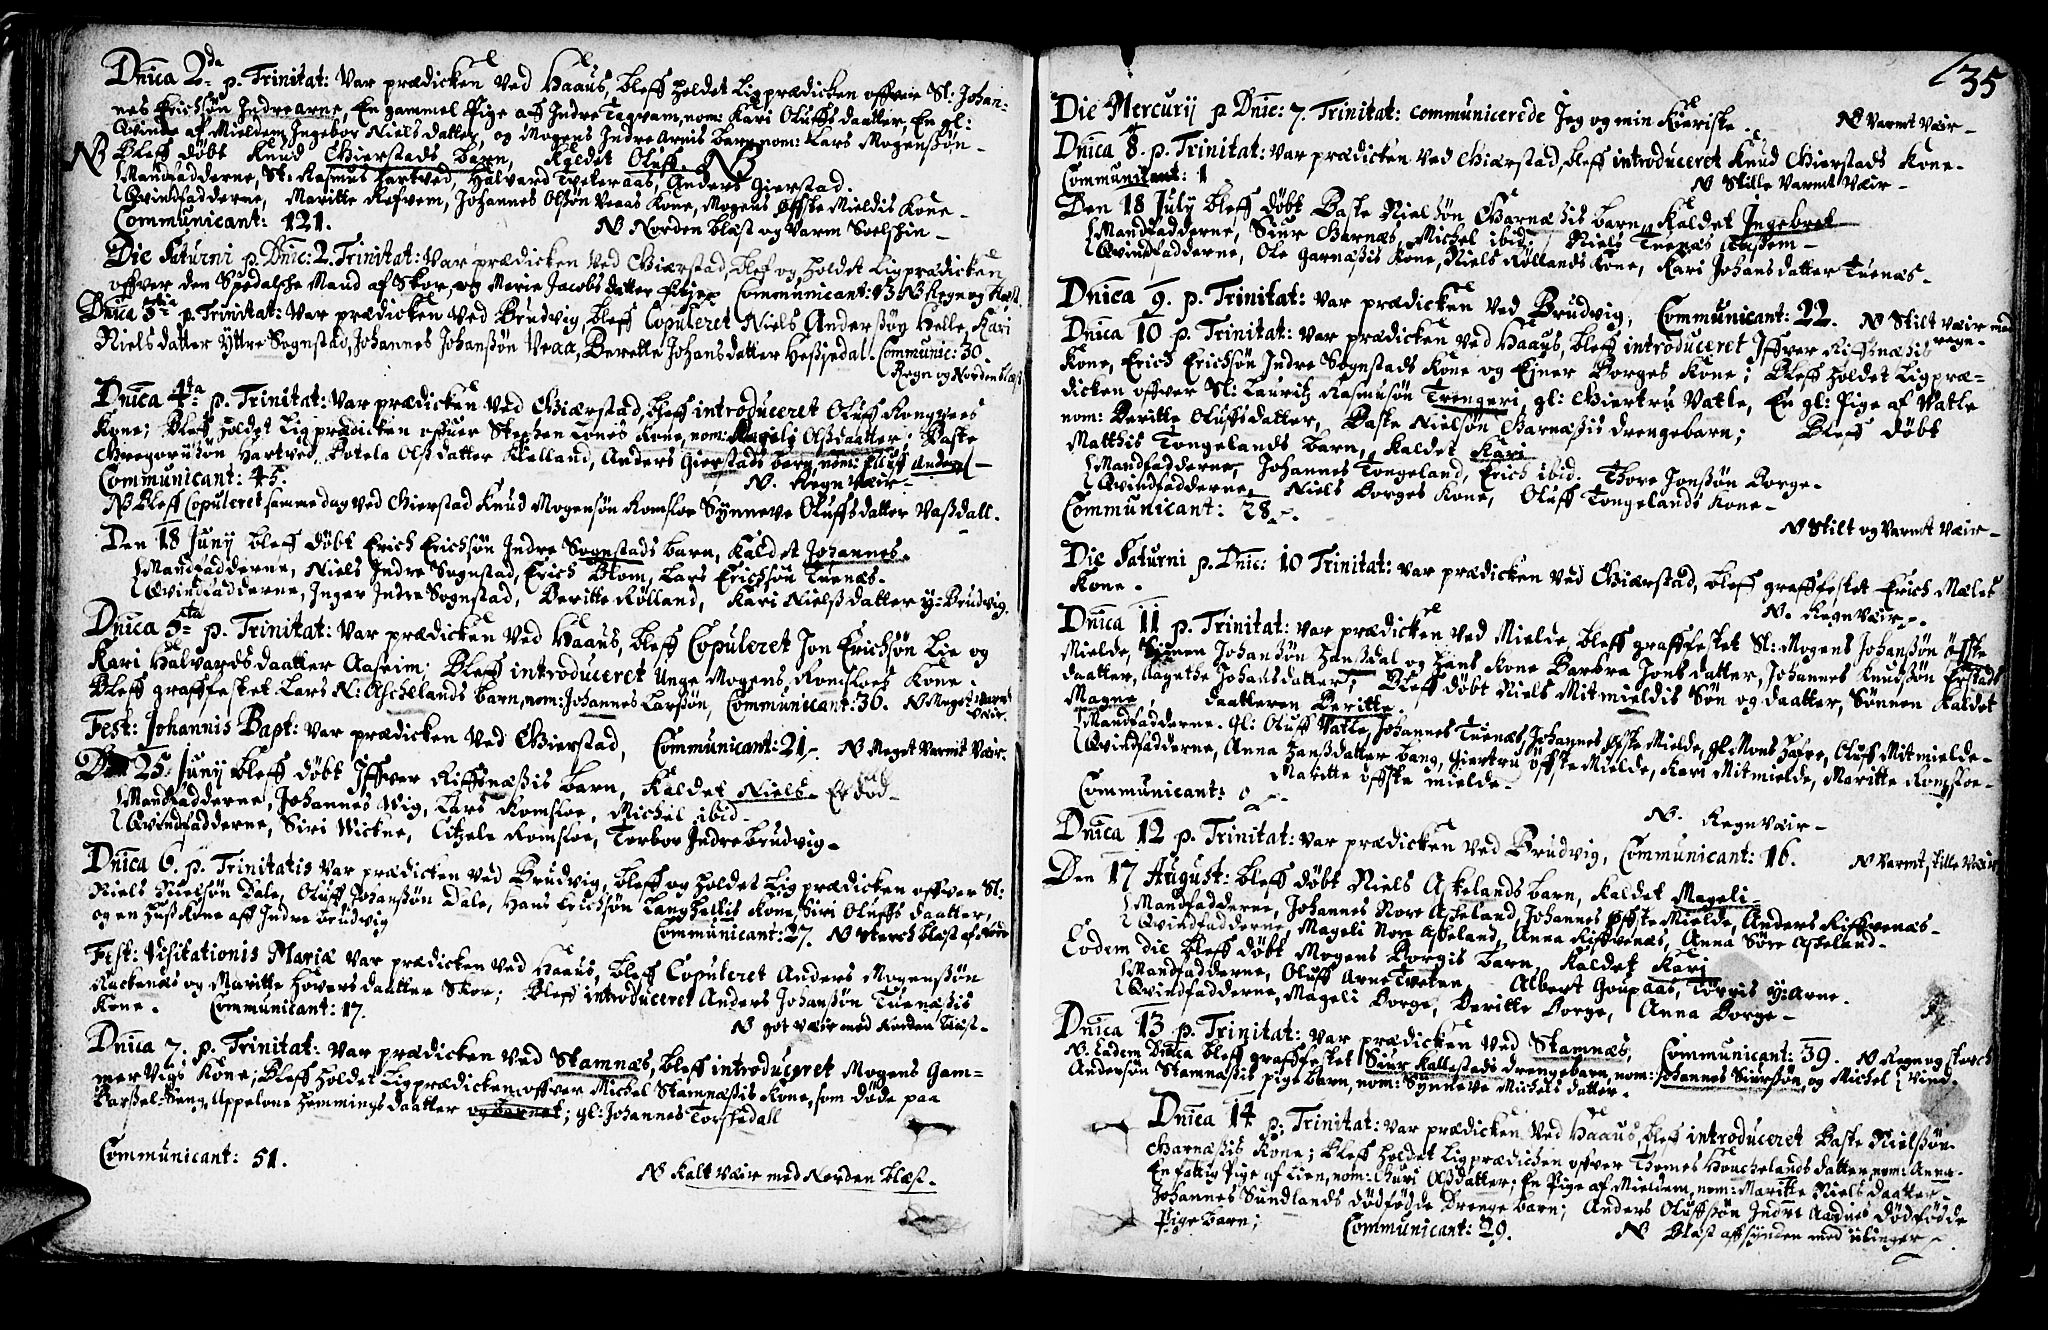 Dnica 2da p. Trinitat: Var prædicken Ved Haaus, bleff holdet Ligprædicken offver Sl: Johan-
nes Erichsøn Indre Arne, En gammel Pige aff Indre Tagvam, nom: Kari Oluffsdaatter, En gl:
Qvinde af Mieldem Ingebor Nielsdatter, og Mogens Indre Arnis barn, nom: Lars Mogensøn -
NB Bleff døbt Knud Gierstads barn, Kaldet Oluff. NB
Mandfadderne, Sl: Rasmus Hartved, Halvard Tveteraas, Anders Gierstad.
Qvindfadderne, Maritte Refvem, Johannes Olsøn Veaas Kone, Mogens Øffste Mieldis Kone -
Communicant: 121. NB Norden blæst og Varm Soelskin -
Die Saturni p. Dnic: 2. Trinitat: Var prædicken Ved Giærstad, blef og holdet Ligprædicken
offver den Spedalske Mand af Skor, og Merie Jacobsdatter Communicant: 13 NB Regn og blæst.
Dnica 3tia p. Trinitat: Var prædicken Ved Brudvig, bleff Copuleret Niels Andersøn Helle, Kari
Nielsdatter Yttre Sognstad, Johannes Johansøn Veaa, Berette Johansdatter Hesjedal. Communic: 30.
Regn og Norden blæst
Dnica 4ta p. Trinitat: Var prædicken Ved Giærstad, bleff introduceret Oluff Rongvees
Kone; Bleff holdet Ligprædicken offver Stephen Lones Kone, nom: Mageli Olsdaatter; Baste
Gregoriusøn Hartved, Botela Olsdatter Kielland, Anders Gierstads barn, nom: Elluf Anders
Communicant: 45. N. Regn Vær -
NB Bleff Copuleret samme dag ved Gierstad Knud Mogensøn Romsloe Synneve Oluffsdatter Vassdall.
Den 18 Juny bleff døbt Erich Erichsøn Indre Sognstads barn, Kaldet Johannes.
Mandfadderne, Niels Indre Sognstad, Erich Blom, Lars Erichsøn Tuenæs.
Qvindfadderne, Inger Indre Sognstad, Beritte Rølland, Kari Nielsdatter y: Brudvig.
Dnica 5ta p. Trinitat: Var prædicken Ved Haaus, bleff Copuleret Jon Erichsøn Lie og
Kari Halvardsdaatter Aaseim. Bleff introduceret Unge Mogens Romsloes Kone.
Bleff graffestet Lars N: Aschelands barn, nom: Johannes Larsøn, Communicant: 36. N Meget Varmt
Vær.
Fest: Johannis Bapt: Var prædicken Ved Gierstad, Communicant: 21. N Meget Varmt Vær.
Den 25. Juny bleff døbt Iffver Riffsnæsis barn, Kaldet Niels. Er død -
Mandfadderne, Johannes Wig, Lars Romsloe, Michel ibid -
Qvindfadderne, Siri Wickne, Citzele Romsloe, Torbor Indre brudvig -
Dnica 6. p. Trinitatis Var prædicken Ved Brudvig, bleff og holdet Ligprædicken offver Sl:
Niels Juelsøn Dale, Oluff Johansøn Dale, Hans Erichsøn Langhellis Kone, Siri Oluffs daatter,
og en Huss Kone aff Indre brudvig
Communicant: 27. N Sterch blæst af Norden
Fest: Visitationis Mariæ Var prædicken Ved Haaus, bleff Copuleret Anders Mogensøn
Rackenæs og Maritte Hoversdaatter Skor; Bleff introduceret Anders Johansøn Tuenæsis
Kone. Communicant: 17.
N got Vær med Norden blæst -
Dnica 7. p. Trinitat: Var prædicken Ved Stamnæs, bleff introduceret Mogens Gam-
mer Vigs Kone; Bleff holdet Ligprædicken offver Michel Stamnæsis Kone, som døde paa
Barsel-Seng, Appelone Hemmingsdaatter og barnet; gl: Johannes Torskedall
Communicant: 51.
N Kalt Vær med Norden blæst.
135
Die Mercurij p Dnic: 7. Trinitat: communicerede Jeg og min Kieriste. N Varmt Vær -
Dnica 8. p. Trinitat: Var prædicken Ved Giærstad, bleff introduceret Knud Gierstads Kone.
Communicant: 1 N Stille Varmt Vær -
Den 18 July bleff døbt Baste Nielsøn Garnæsis barn, Kaldet Ingebret
Mandfadderne, Siur Garnæs, Michel ibid. Niels Tuenæs
Qvindfadderne, Ole Garnæsis Kone, Niels Røllands Kone, Kari Johansdatter Tuenæs -
Dnica 9. p. Trinitat: Var prædicken Ved Brudvig, Communicant: 22. N Stilt Vær med
regn -
Dnica 10 p. Trinitat: Var prædicken Ved Haaus, bleff introduceret Iffver Riffsnæsis
Kone, Erich Erichsøn Indre Sognstads Kone og Ejner Borges Kone; Bleff holdet Ligpræ=
dicken offver Sl: Lauritz Rasmusøn Trengeri, gl: Giertru Vatle, En gl: Pige af Vatle
nom: Beritte Oluffsdatter, Baste Nielsøn Garnæsis drengebarn; Bleff døbt
Matthis Tongelands barn, Kaldet Kari
Mandfadderne, Johannes Tongeland, Erich ibid. Thore Jonsøn Borge -
Qvindfadderne, Niels Borges Kone, Oluff Tongelands Kone -
Communicant: 28.
N Stilt og Varmt Vær -
Die Saturni p. Dnic: 10 Trinitat: Var prædicken Ved Giærstad, bleff graffestet Erich Mæles
Kone. N. Regn Vær.
Dnica 11 p. Trinitat: Var prædicken Ved Mielde, bleff graffestet Sl: Mogens Johansøn öffste
Mielde, Simen Johansøn Hansdal og Hans Kone Barbra Jonsdatter, Johannes Knudsøn Erstads
daatter, Aagethe Johansdatter; Bleff døbt Niels Mitmieldis Søn og daatter, Sønnen Kaldet
Magne, daatteren Beritte.
Mandfadderne. gl: Oluff Vatle, Johannes Tuenæs, Johannes Øffste Mielde, gl: Mons Hafre, Oluff Mitmielde -
Qvindfadderne, Anna Hansdatter bang, Giertru öffste Mielde, Kari Mitmielde, Maritte Romsloe -
Maritte öffste mielde -
Communicant: 0
N. Regn Vær -
Dnica 12 p. Trinitat: Var prædicken Ved Brudvig, Communicant: 16. N Varmt, stille Vær
Den 17 August: bleff døbt Niels Askelands barn, Kaldet Mageli -
Mandfadderne, Johannes Nore Askeland, Johannes öfste Mielde, Anders Riffvenæs -
Qvindfadderne, Mageli Nore Askeland, Anna Riffvenæs, Anna Søre Askeland -
Eodem die bleff døbt Mogens Borgis barn, Kaldet Kari
Mandfadderne, Oluff Arne Tveten, Albert Goupaas, Tørris y: Arne.
Qvindfadderne, Mageli Borge, Beritte Borge, Anna Borge -
Dnica 13 p. Trinitat: Var prædicken Ved Stamnæs, Communicant: 39. N Regn og sterch
N. Eadem Dnica bleff graffestet Siur Kallestads drengebarn, nom: Johannes Siursøn, og Michel Vind.
Andersøn Stamnæsis pige barn, nom: Synneve Michels datter.
Dnica 14 p. Trinitat: Var prædicken Ved Haaus, bleff introduceret Baste Nielsøn
Garnæsis Kone; Bleff holdet Ligprædicken offver Thomes Houchelands datter, nom: Anna -
En fattig Pige af Lien, nom: Guri Olsdatter; En Pige af Mieldem, nom: Maritte Niels daatter -
Johannes Sundlands dødfødde Drenge barn; Anders Oluffsøn Indre Aadnes dødfødde
Pige barn; Communicant: 29. N Blæst aff synden med